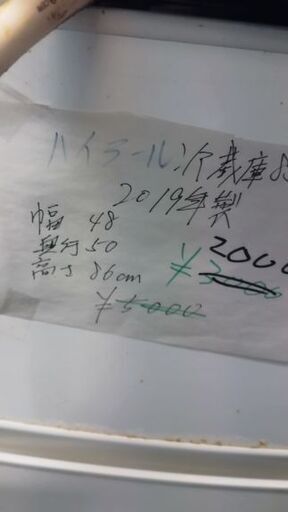 ハイアール冷蔵庫8
2019年製
幅 48
奥行50
高さ 86cm
2000
¥3000
¥5000